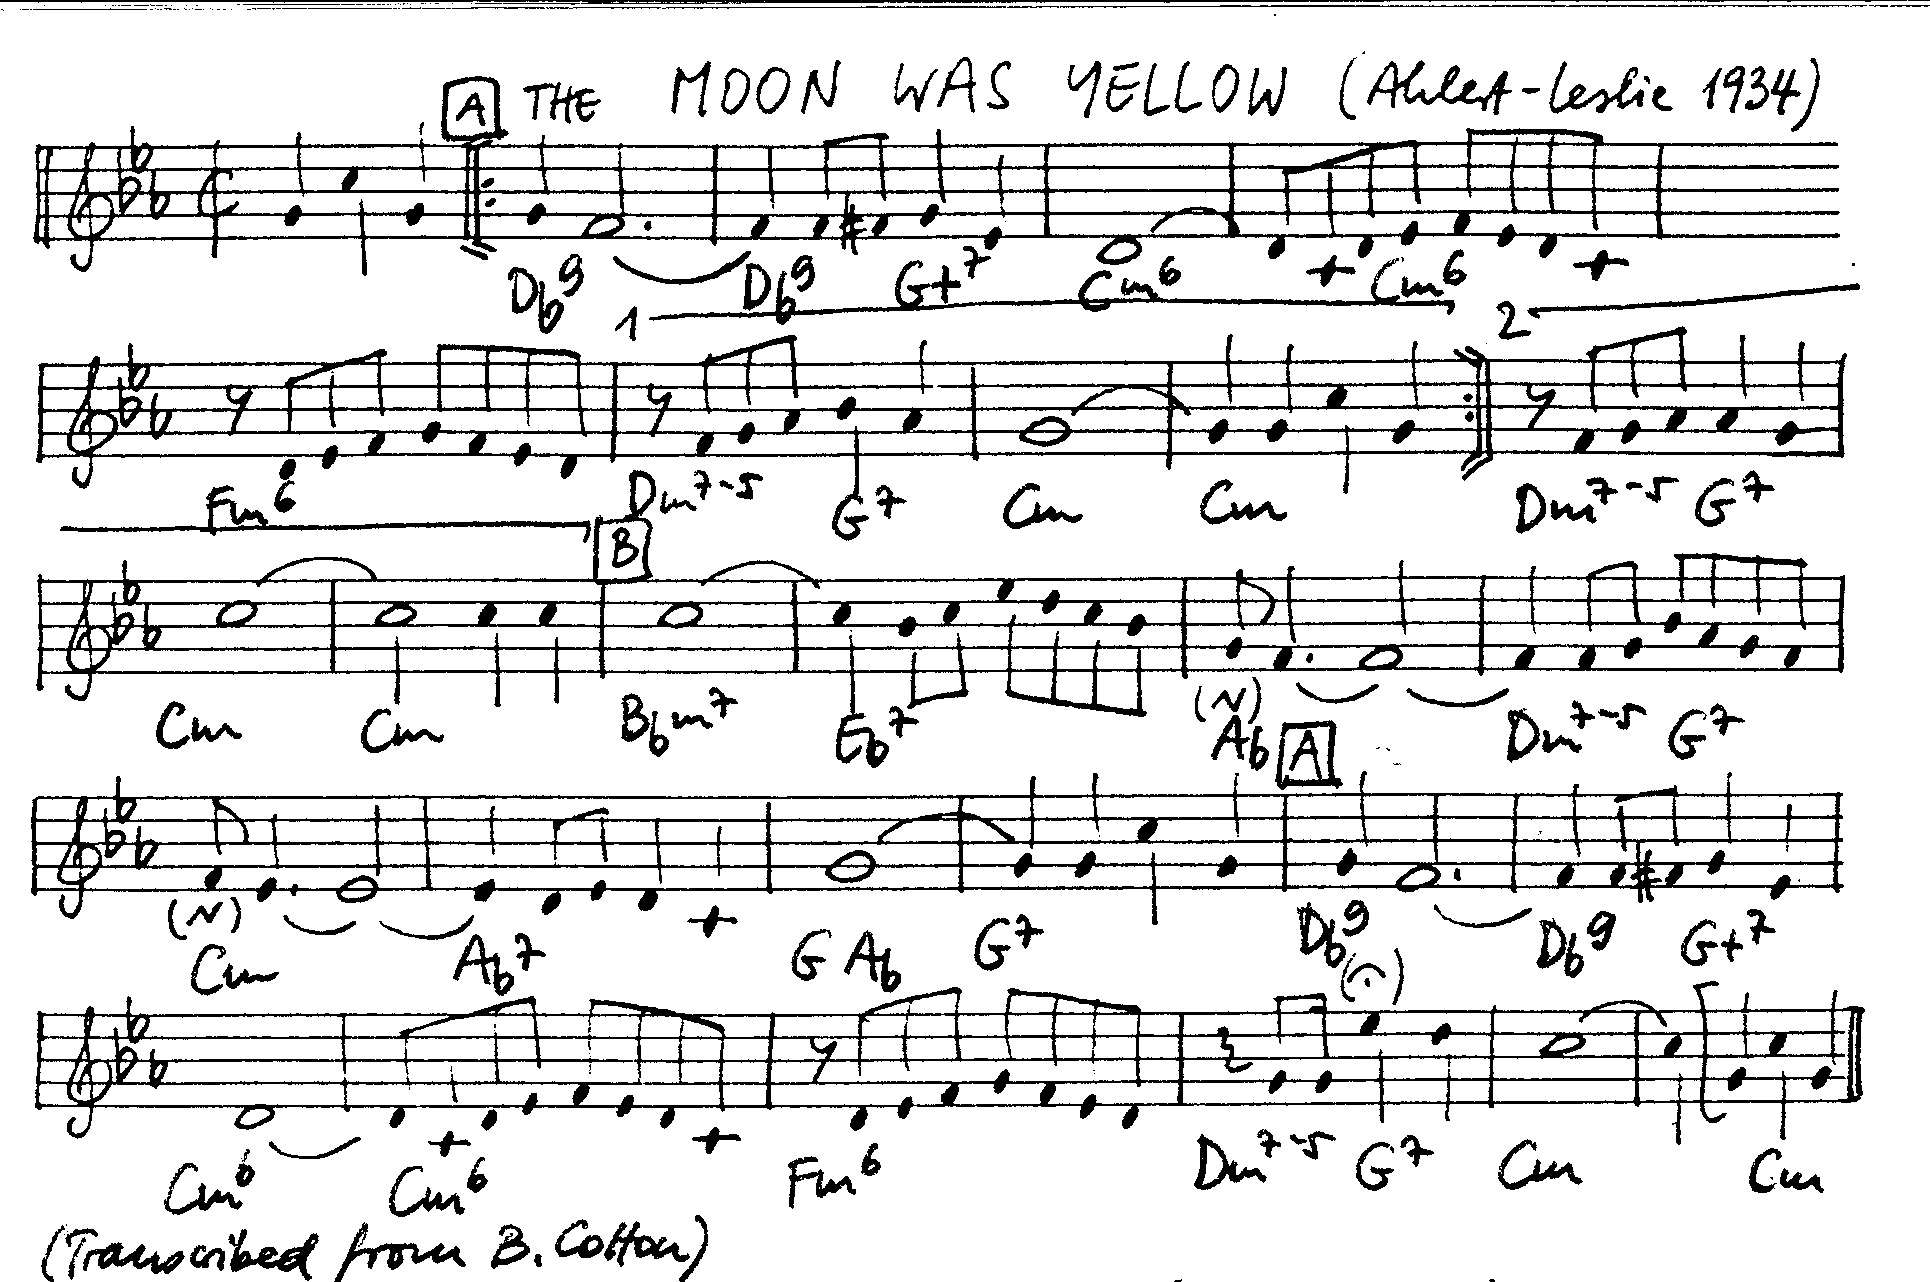 A THE MOON WAS YELLOW (Ahlert-Leslie 1934)
Db9 Db9 G+7 Cm6 Cm6
1 2
Fm6 Dm7-5 G7 Cm Cm Dm7-5 G7
B
Cm Cm Bbm7 Eb7 Ab Dm7-5 G7
A
Cm Ab7 G Ab G7 Db9 Db9 G+7
Cm6 Cm6 Fm6 Dm7-5 G7 Cm Cm
(Transcribed from B. Cotton)